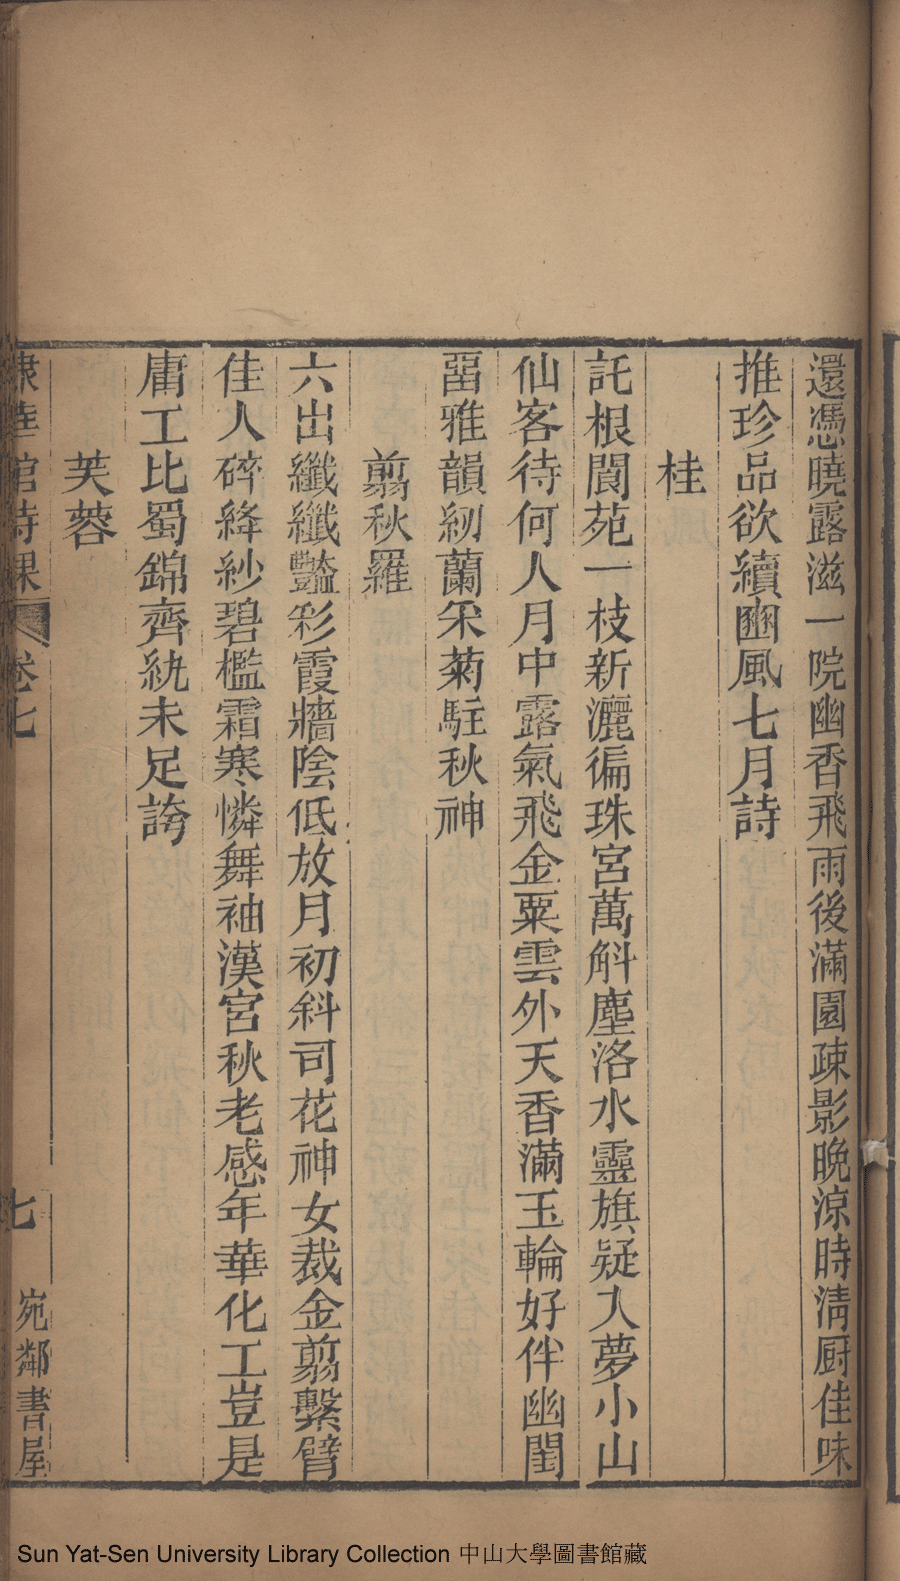 還憑曉露滋一院幽香飛雨後滿園疎影晚涼時淸厨佳味
推珍品欲續豳風七月詩
桂
託根閬苑一枝新灑徧珠宮萬斛塵洛水靈旗疑入夢小山
仙客待何人月中露氣飛金粟雲外天香滿玉輪好伴幽閨
畱雅韻紉蘭采菊駐秋神
翦秋羅
六出纖纖豔彩霞牆陰低放月初斜司花神女裁金翦繫臂
佳人碎絳紗碧檻霜寒憐舞袖漢宮秋老感年華化工豈是
庸工比蜀錦齊紈未足誇
芙蓉
館詩課 卷七 七 宛鄰書屋
Sun Yat-Sen University Library Collection 中山大學圖書館藏